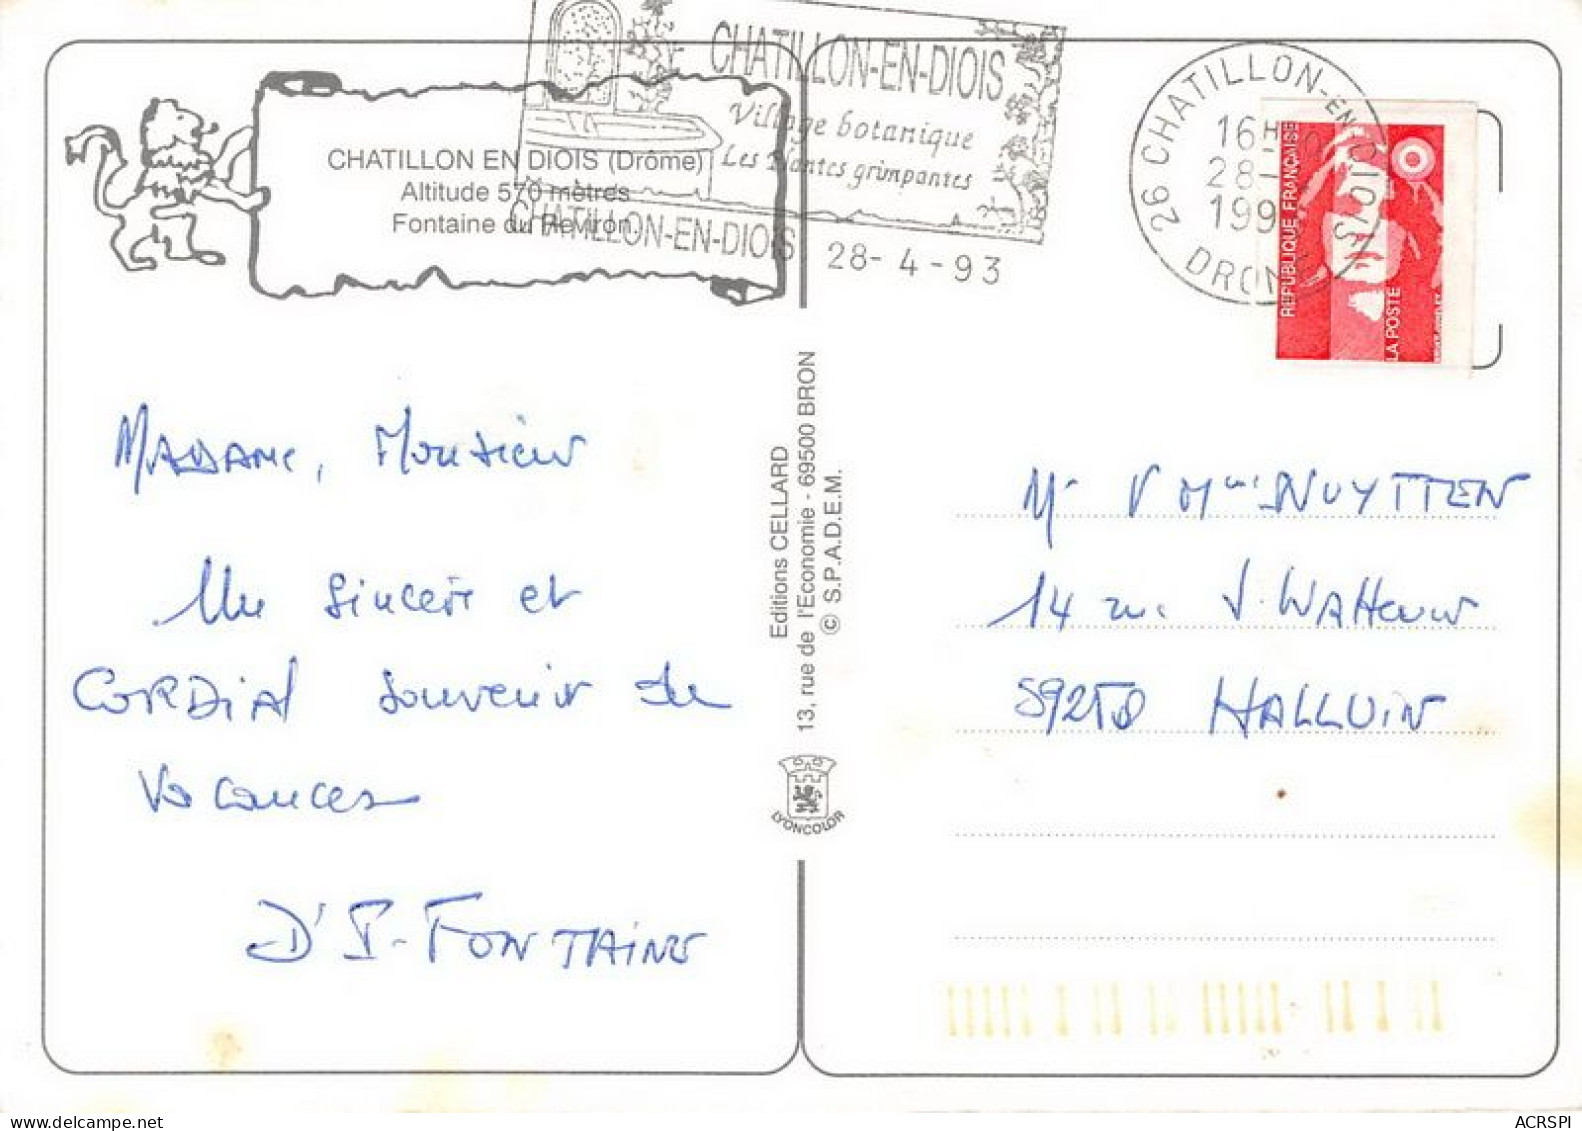 CHATILLON-EN-DIOIS
Village botanique
Les Plantes grimpantes
CHATILLON-EN-DIOIS
28-4-93
26 CHATILLON-EN-DIOIS
16H
28-
199
DROME
REPUBLIQUE FRANÇAISE
LA POSTE
CHATILLON EN DIOIS (Drôme)
Altitude 570 mètres
Fontaine du Reviron.
MADAME, Monsieur
Un sincère et
CORDIAL souvenir de
Vacances
D' P. FONTAINE
Editions CELLARD
13, rue de l'Economie - 69500 BRON
© S.P.A.D.E.M.
LYONCOLOR
Mr & Mme NUYTTEN
14 rue J. Watteuw
59250 HALLUIN
delcampe.net
ACRSPI